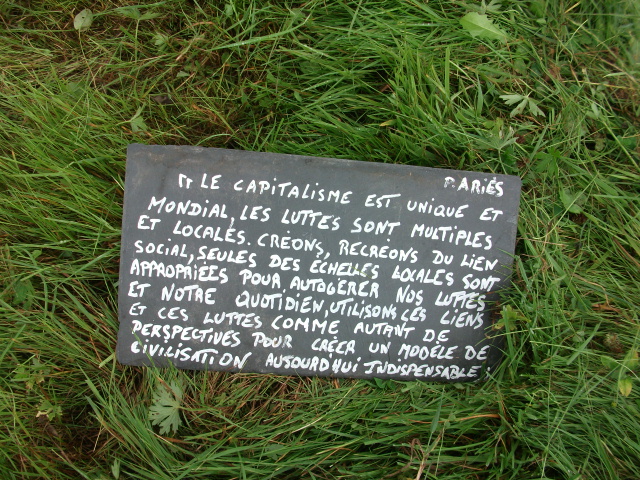 P. ARIÈS
" LE CAPITALISME EST UNIQUE ET
MONDIAL, LES LUTTES SONT MULTIPLES
ET LOCALES. CRÉONS, RECRÉONS DU LIEN
SOCIAL, SEULES DES ÉCHELLES LOCALES SONT
APPROPRIÉES POUR AUTOGÉRER NOS LUTTES
ET NOTRE QUOTIDIEN, UTILISONS CES LIENS
ET CES LUTTES COMME AUTANT DE
PERSPECTIVES POUR CRÉER UN MODÈLE DE
CIVILISATION AUJOURD'HUI INDISPENSABLE.